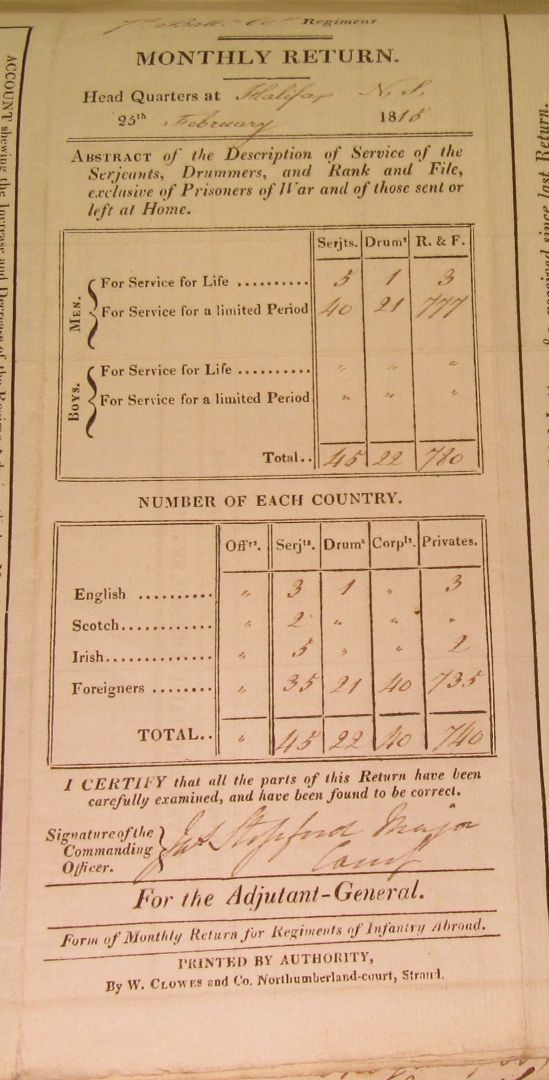 7th Batt. 60th Regiment
MONTHLY RETURN.
Head Quarters at Halifax N. S.
25th February 1815
ABSTRACT of the Description of Service of the
Serjeants, Drummers, and Rank and File,
exclusive of Prisoners of War and of those sent or
left at Home.
Serjts. Drumrs R. & F.
MEN.
For Service for Life .......... 5 1 3
For Service for a limited Period 40 21 777
BOYS.
For Service for Life .......... " " "
For Service for a limited Period " " "
Total.. 45 22 780
NUMBER OF EACH COUNTRY.
Offrs. Serjts. Drums Corpls. Privates.
English .......... " 3 1 " 3
Scotch............ " 2 " " "
Irish............. " 5 " " 2
Foreigners ........ " 35 21 40 735
TOTAL.. " 45 22 40 740
I CERTIFY that all the parts of this Return have been
carefully examined, and have been found to be correct.
Signature of the
Commanding
Officer.
Stopford Major
For the Adjutant-General.
Form of Monthly Return for Regiments of Infantry Abroad.
PRINTED BY AUTHORITY,
By W. CLOWES and Co. Northumberland-court, Strand.
ACCOUNT shewing the Increase and Decrease of the
received since last Return.